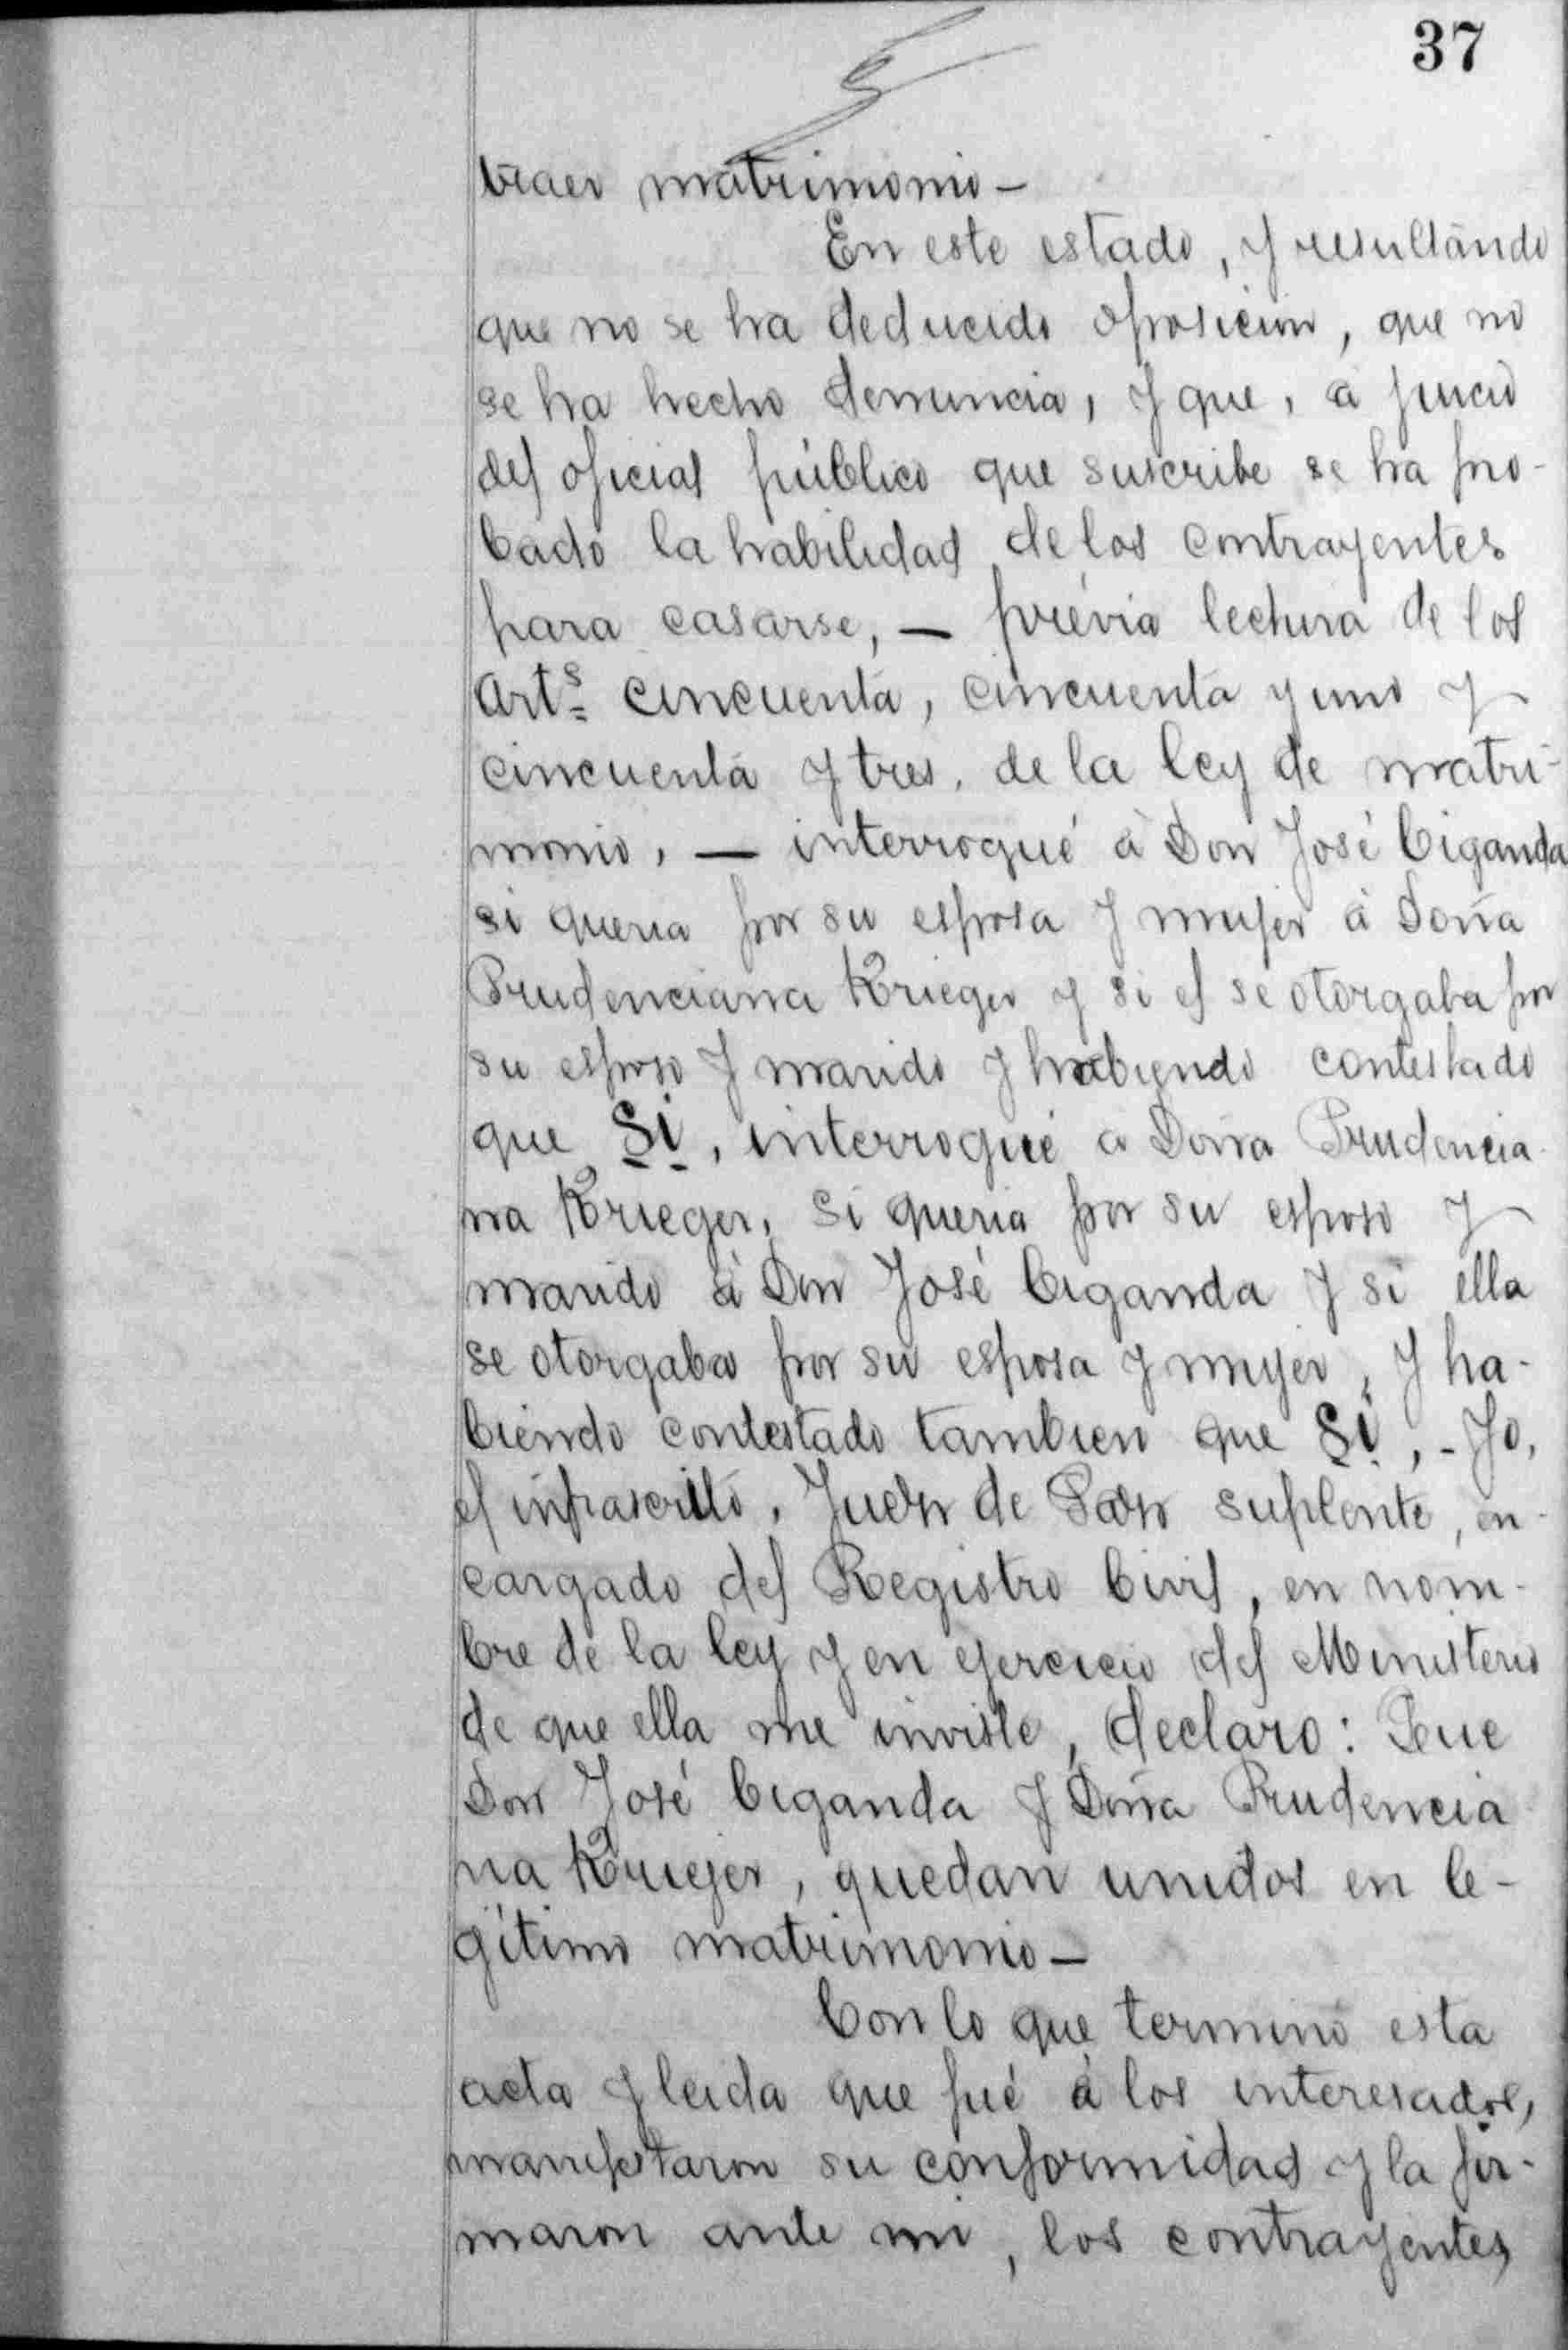 37
traer matrimonio—
En este estado, y resultando
que no se ha deducido oposicion, que no
se ha hecho denuncia, y que, á juicio
del oficial público que suscribe se ha pro-
bado la habilidad de los contrayentes
para casarse, — prévia lectura de los
Artˢ. cincuenta, cincuenta y uno y
cincuenta y tres, de la ley de matri-
monio, — interrogué á Don José Ciganda
si queria por su esposa y mujer á Doña
Prudenciana Krieger y si el se otorgaba por
su esposo y marido y habiendo contestado
que Si, interrogué a Doña Prudencia-
na Krieger, si queria por su esposo y
marido á Don José Ciganda y si ella
se otorgaba por su esposa y mujer, y ha-
biendo contestado tambien que Si, - Yo,
el infrascrito, Juez de Paz suplente, en-
cargado del Registro Civil, en nom-
bre de la ley y en ejercicio del Ministerio
de que ella me inviste, declaro: Que
Don José Ciganda y Doña Prudencia
na Krieger, quedan unidos en le-
gítimo matrimonio—
Con lo que terminó esta
acta y leida que fué á los interesados,
manifestaron su conformidad y la fir-
maron ante mi, los contrayentes,